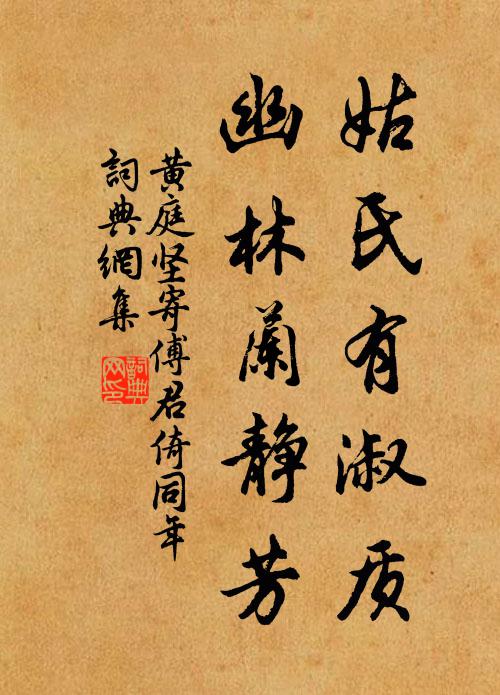 姑氏有淑质
幽林蘭静芳
黄庭坚寄傅君倚同年
詞典網集
詞典网印